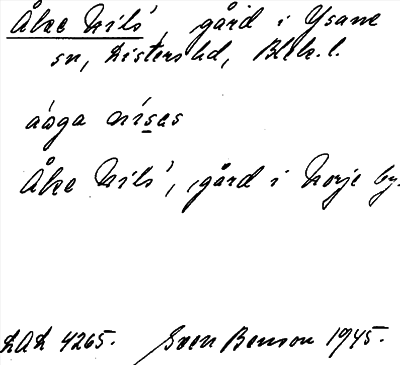 Åke Nils', gård i Ysane
sn, Listers hd, Blek. l.
åoga nísas
Åke Nils', gård i Norje by.
LAL 4265. Sven Benson 1945.